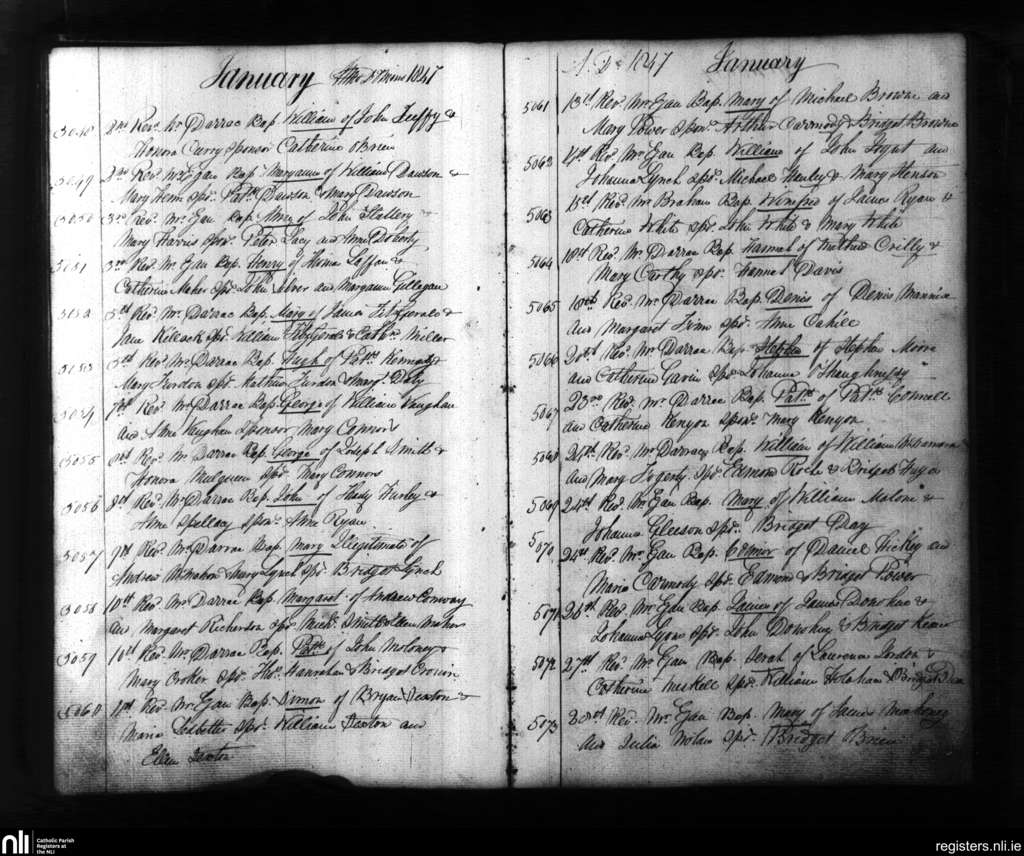 January Anno Domini 1847
5048 2nd Revd. Mr Darrac Bap William of John Duffy &
Honora Curry Sponsor Catherine OBrien
5049 2nd Revd. Mr Egan Bap. Maryanne of William Dawson &
Mary spsr. Patk. Dawson & Mary Dawson
5050 3rd Revd. Mr. Egan Bap. Amey of John Slattery &
Mary Harris spsr. Peter Lacy and Anne Doherty
5051 3rd Revd. Mr. Egan Bap. Henry of Thomas Laffan &
Catherine Maher spsr. John and Maryanne Gillegan
5052 5th Revd. Mr. Darrac Bap. Mary of James Fitzgerald &
Jane spsr. William Fitzgerald & Cathn. Millar
5053 5th Revd. Mr. Darrac Bap. Hugh of Patk. Kennedy &
Mary spsr. & Margt. Daly
5054 7th Revd. Mr Darrac Bap. George of William Vaughan
and Anne Vaughan Sponsor Mary Connors
5055 8th Revd. Mr. Darrac Bap. George of Joseph Smith &
Honora Mulqueen spsr. Mary Connors
5056 8th Revd. Mr Darrac Bap. John of Thady Hurley &
Anne Spellacy sponr. Anne Ryan
5057 9th Revd. Mr Darrac Bap. Mary Illegitimate of
Andrew McMahon & Mary Lynch spsr. Bridget Lynch
5058 10th Revd. Mr Darrac Bap. Margaret of Andrew Conway
and Margaret Richerson spsr. Michl.
5059 10th Revd. Mr. Darrac Bap. Patk. of John Moloney &
Mary Croker spsr. Thos. Hanrahan & Bridget Cronin
5060 11th Revd. Mr. Egan Bap. Simon of Bryan Sexton &
Maria Ledbetter spsr. William Sexton and
Ellen Sexton
A. D. 1847 January
5061 13th Revd. Mr. Egan Bap. Mary of Michael Browne and
Mary Power sponr. Arthur Carmody & Bridget Browne
5062 Revd. Mr. Egan Bap. William of John and
Johanna Lynch spsr. Michael Hanley & Mary Henson
5063 15th Revd. Mr Braham Bap. Winefred of James Ryan &
Catherine White spsr. John White & Mary White
5064 18th Revd. Mr. Darrac Bap. Hannah of Mathew Oreilly &
Mary Curthy spsr. Hannah Davis
5065 18th Revd. Mr. Darrac Bap. Denis of Denis
and Margaret Finn spsr. Anne Cahill
5066 20th Revd. Mr. Darrac Bap Stephen of Stephen Moore
and Catherine Gavin spsr. Johanna OShaughnessy
5067 23rd Revd. Mr. Darrac Bap. Patk. of Patk. Connell
and Catherine Kenyon sponr. Mary Kenyon
5068 24th Revd. Mr. Darrac Bap. William of William McNamara
and Mary Fogerty spsr. Edmond Roche & Bridget
5069 24th Revd. Mr. Egan Bap. Mary of William Malone &
Johanna Gleeson spsr. Bridget Day
5070 24th Revd. Mr. Egan Bap. of Daniel Hickey and
Maria Carmody spsr. Edmond & Bridget Power
5071 26th Revd. Mr Egan Bap. James of James Donohue &
Johanna spsr. John & Bridget
5072 27th Revd. Mr. Egan Bap. Sarah of Laurence Jordon &
Catherine Meskell spsr. William & Bridget
5073 Revd. Mr. Egan Bap. Mary of James Mahony
and Julia Nolan spsr. Bridget Brien
nli Catholic Parish
Registers at
the NLI
registers.nli.ie